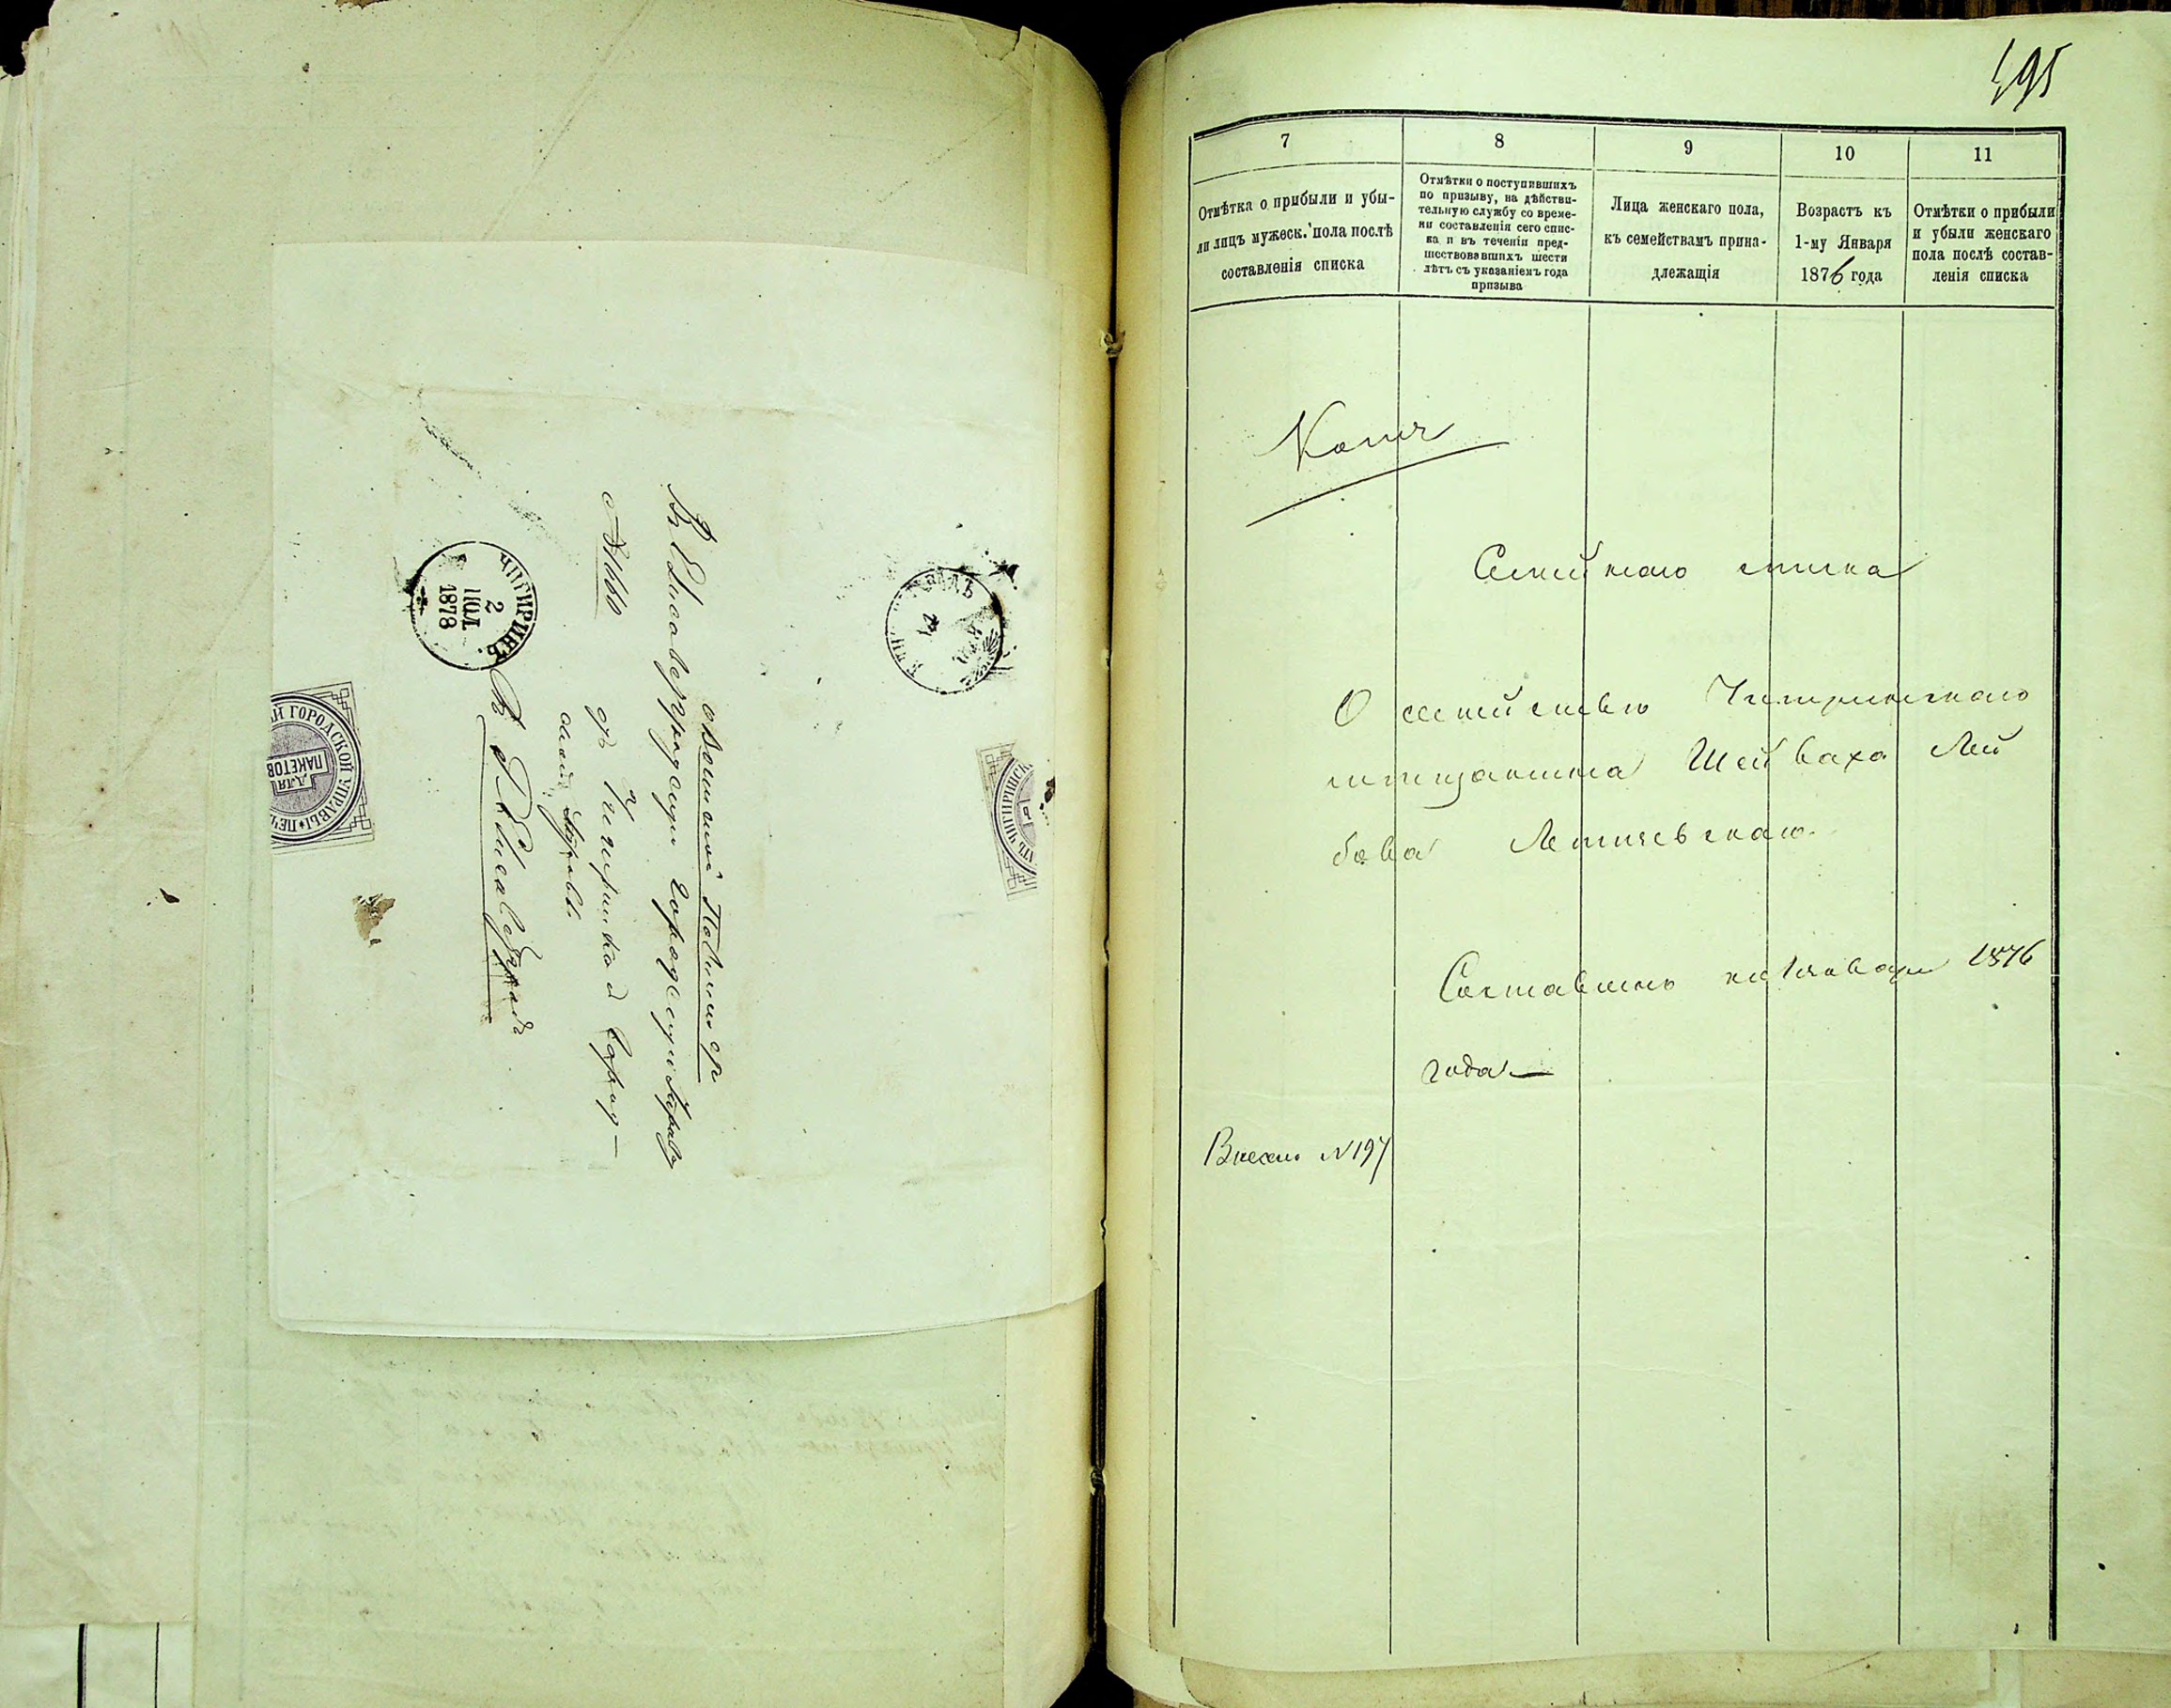 О воинской Повинности
Въ Елисаветградскую Городскую Управу
№ 1660
отъ Чигиринской Город-
ской Управы
Въ г. Елисаветградъ
ЧИГИРИНЪ
2
ІЮЛ
1878
Й ГОРОДСКОЙ УПРАВЫ * ПЕЧ
ДЛЯ
ПАКЕТОВЪ
195
7
8
9
10
11
Отмѣтка о прибыли и убы-
ли лицъ мужеск. пола послѣ
составленія списка
Отмѣтки о поступившихъ
по призыву, на дѣйстви-
тельную службу со време-
ни составленія сего спис-
ка и въ теченіи пред-
шествовавшихъ шести
лѣтъ съ указаніемъ года
призыва
Лица женскаго пола,
къ семействамъ прина-
длежащія
Возрастъ къ
1-му Января
1876 года
Отмѣтки о прибыли
и убыли женскаго
пола послѣ состав-
ленія списка
Копія
Семейнаго списка
О семействѣ Чигиринскаго
мѣщанина Шейваха Лей
бова Летичевскаго.
Составленъ къ Январю 1876
года
Внесенъ № 197